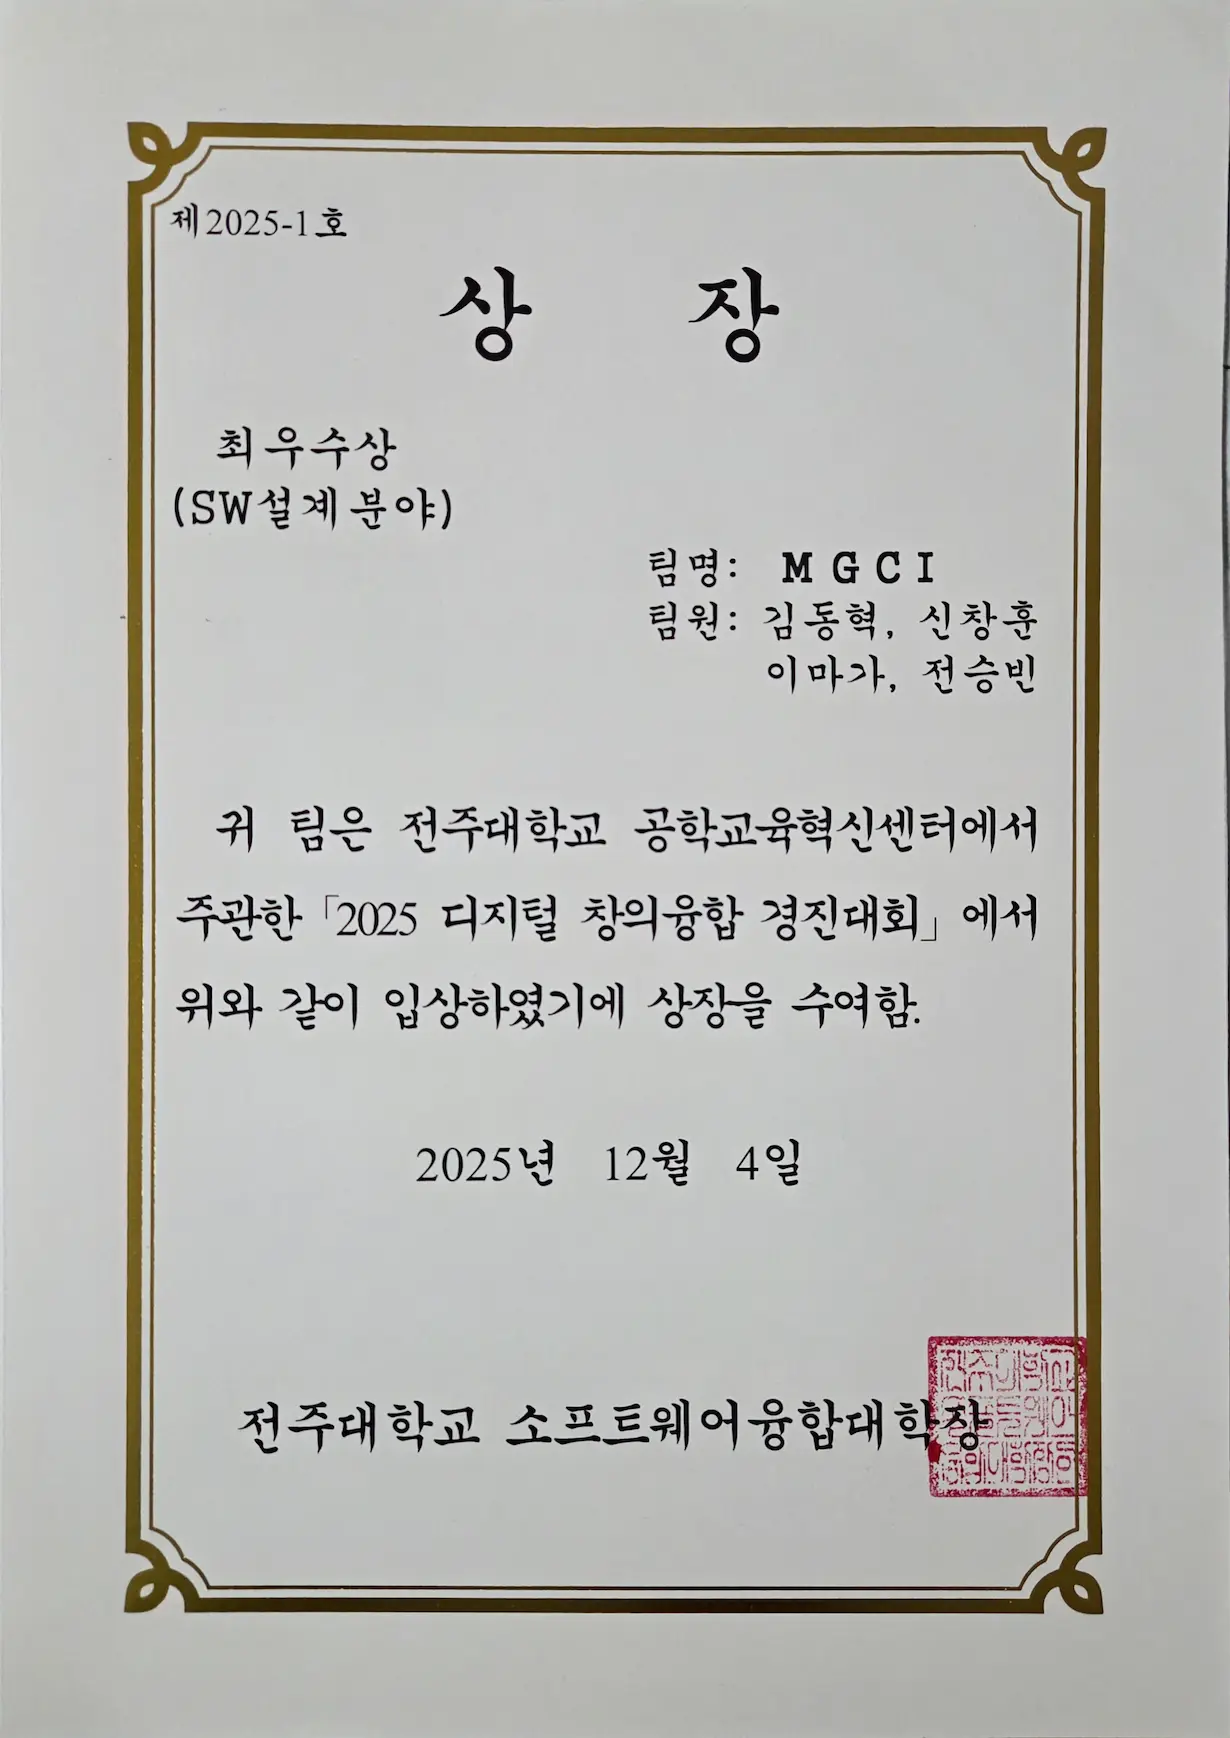 제2025-1호
상 장
최우수상
(SW설계분야)
팀명: MGCI
팀원: 김동혁, 신창훈
이마가, 전승빈
귀 팀은 전주대학교 공학교육혁신센터에서
주관한 「2025 디지털 창의융합 경진대회」에서
위와 같이 입상하였기에 상장을 수여함.
2025년 12월 4일
전주대학교 소프트웨어융합대학장